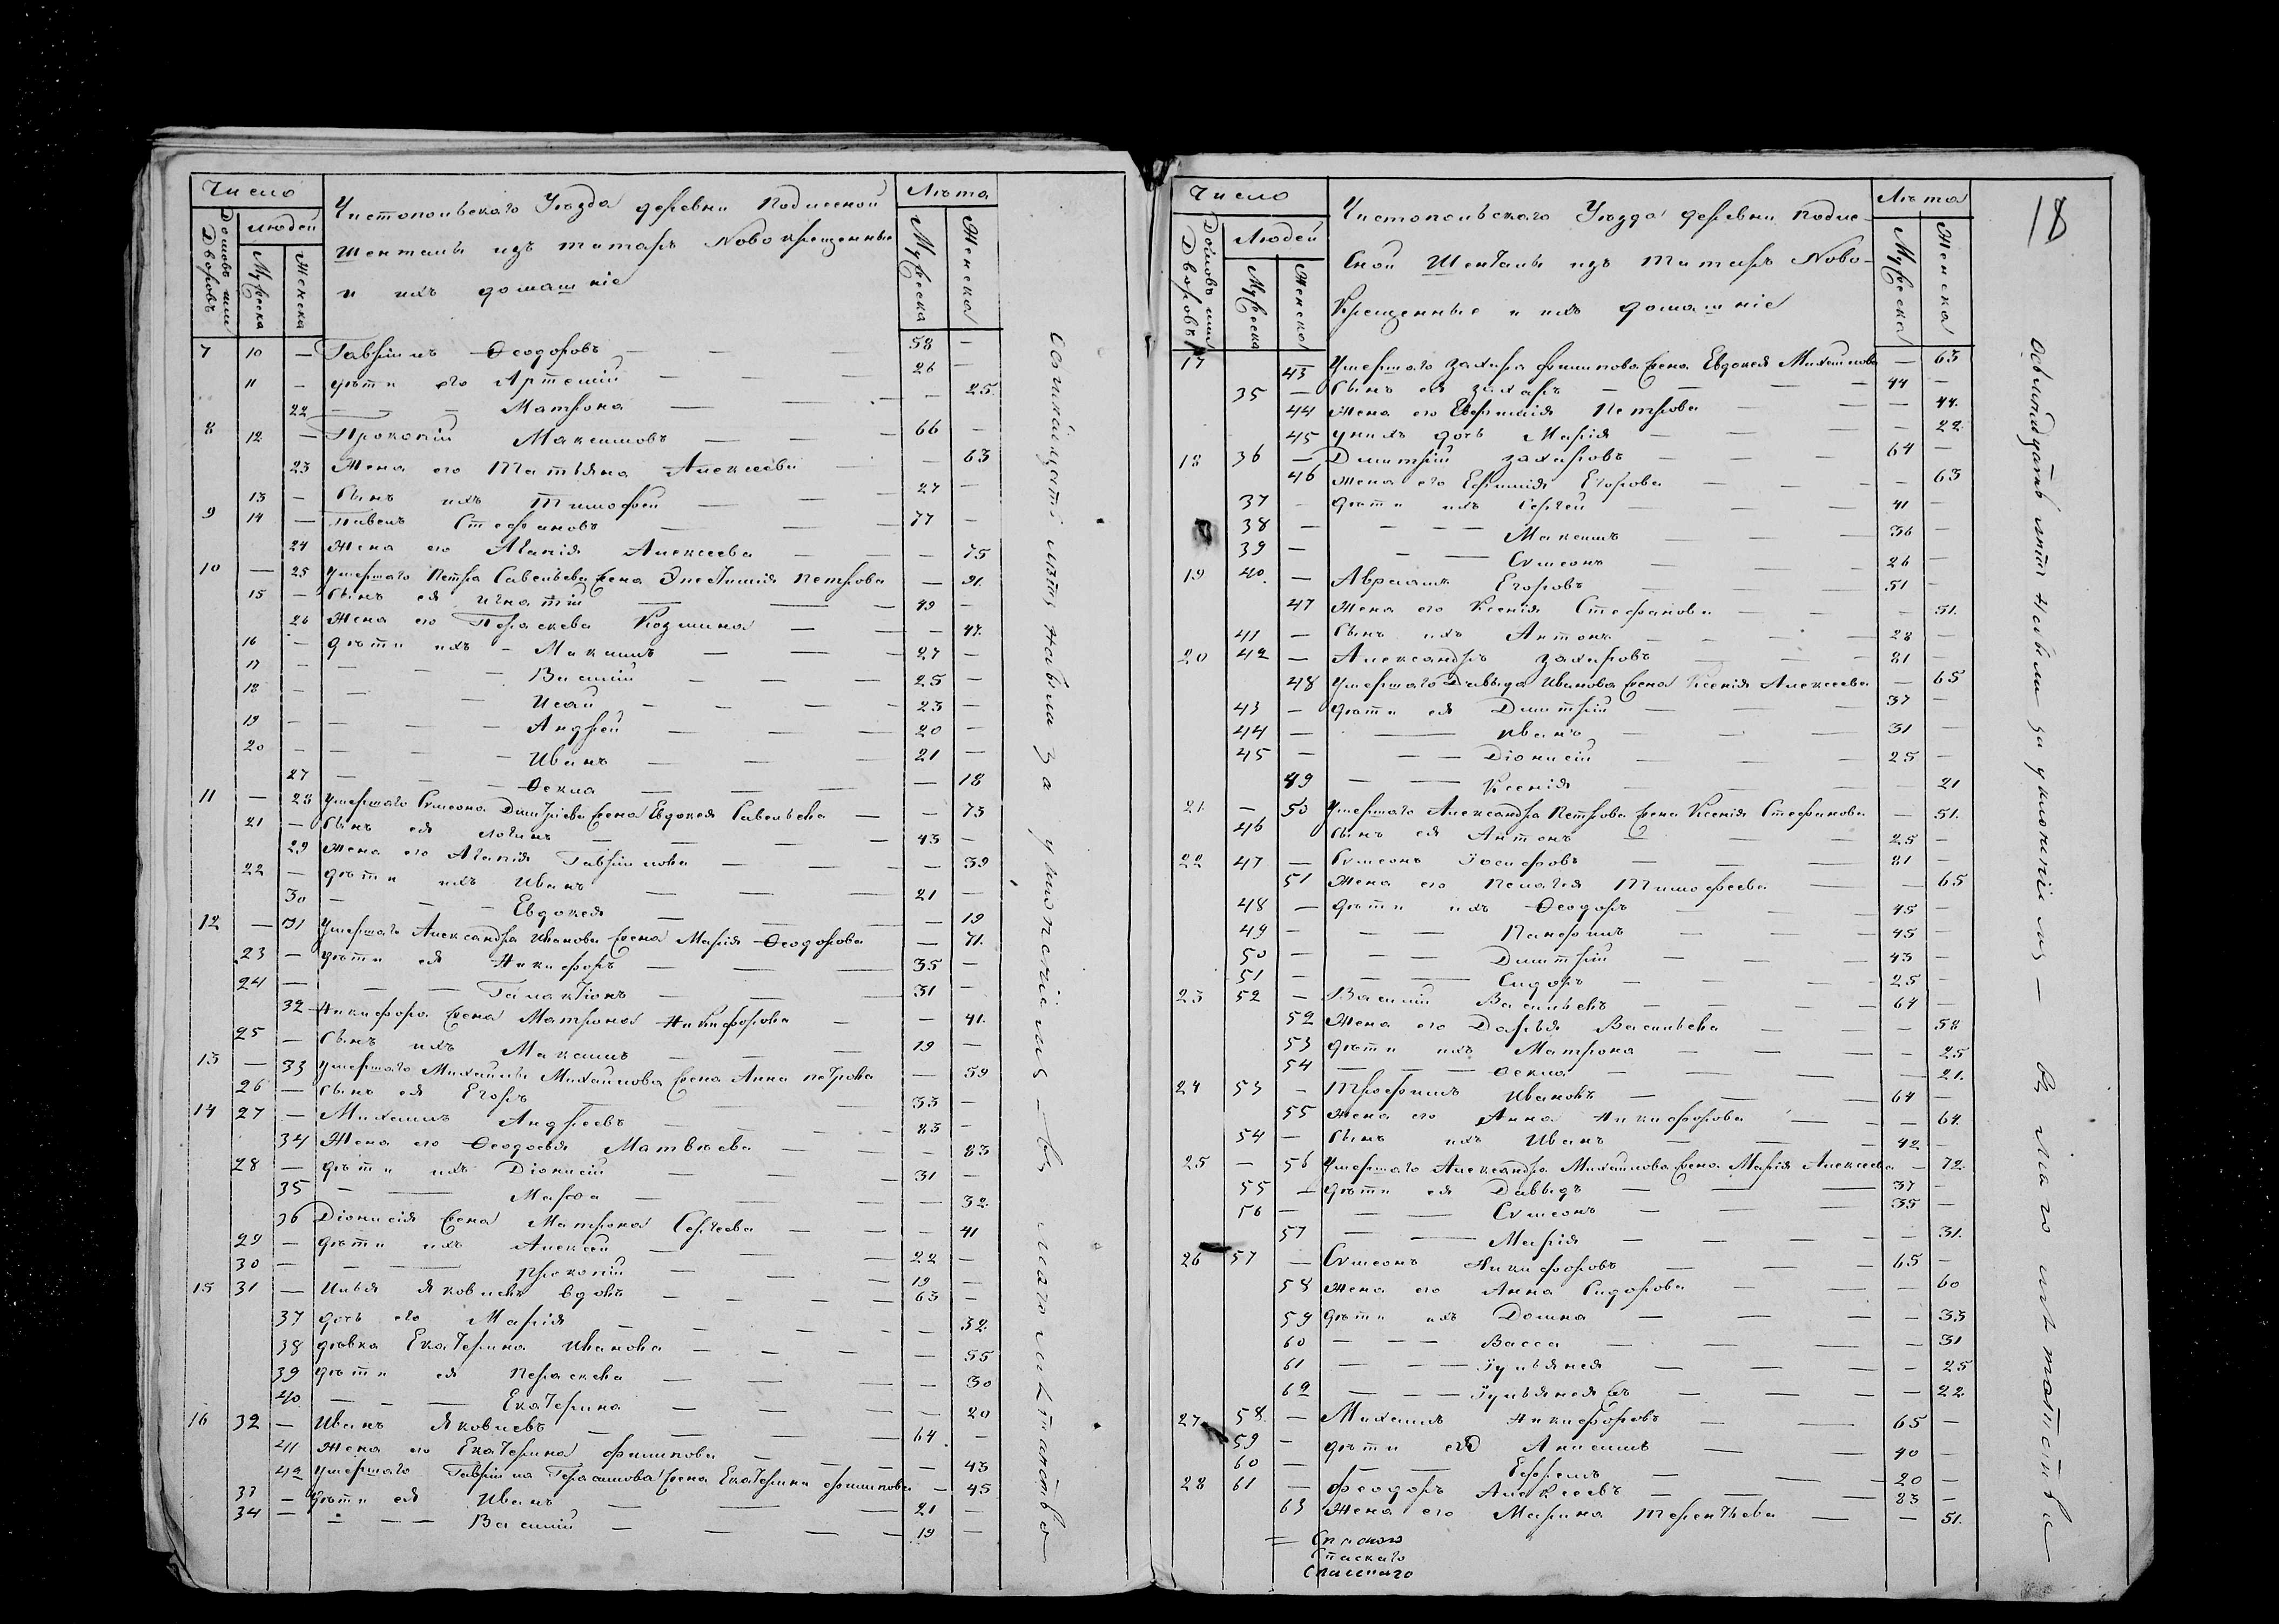 Число
Лѣта
Домовъ или Дворовъ
людей
Мужеска
Женска
Чистопольскаго Уѣзда деревни Подлесной
Шенталы изъ татаръ Новокрещенныя
и ихъ домашніе
Мужеска
Женска
7 10 — Гавріилъ Ѳеодоровъ — — — 58 —
11 — дѣти его Артемій — — — 26 —
22 — — — Матрона — — — — 25.
8 12 — Прокопій Максимовъ — — — 66 —
23 Жена его Татьяна Алексѣева — — 63
13 — Сынъ ихъ Тимофей — — — 27 —
9 14 — Павелъ Стефановъ — — — 77 —
24 Жена его Агапія Алексеева — — — 75
10 — 25 Умершаго Петра Савельева жена Епестимія Петрова — 91.
15 — Сынъ ея Игнатій — — — 49 —
26 Жена его Параскева Козмина — — — 47.
16 — дѣти ихъ — Максимъ — — — 27 —
17 — — — — Василій — — — 25 —
18 — — — Исай — — — — 23 —
19 — — — — Андрей — — — 20 —
20 — — — — Иванъ — — — 21 —
27 — — — Ѳекла — — — — 18
11 — 28 Умершаго Симеона Димитріева жена Евдокея Савельева — — 73
21 — Сынъ ея Логинъ — — — 43 —
29 Жена его Агапія Гавріилова — — — — 39
22 — дѣти ихъ Иванъ — — — 21 —
30 — — — Евдокея — — — — 19
12 — 31 Умершаго Александра Иванова жена Марія Ѳеодорова — 71.
23 — дѣти ея Никифоръ — — — 35 —
24 — — — Галактіонъ — — — 31 —
32 Никифора жена Матрона Никифорова — — 41.
25 — Сынъ ихъ Максимъ — — — 19 —
13 — 33 Умершаго Михайлы Михайлова жена Анна Петрова — 59
26 — Сынъ ея Егоръ — — — 33 —
14 27 — Михаилъ Андреевъ — — — 83 —
34 Жена его Ѳеодосья Матвѣева — — — — 83
28 — дѣти ихъ Діонисій — — — 31 —
35 — — Марѳа — — — — 32.
36 Діонисія жена Матрона Сергеева — — — 41
29 — дѣти ихъ Алексей — — — 22 —
30 — — — Прокопій — — — 19 —
15 31 — Илья Яковлевъ вдовъ — — — — 63 —
37 дочь его Марія — — — — — 32.
38 дѣвка Екатерина Иванова — — — — 55
39 дѣти ея Параскева — — — — 30
40 — — — Екатерина — — — — 20
16 32 — Иванъ Яковлевъ — — — 64 —
41 Жена его Екатерина Филипова — — — — 43
42 Умершаго Гавріила Герасимова жена Екатерина Филипова — 45
33 — дѣти ея Иванъ — — — 21 —
34 — — — — Василій — — — — 19 —
— въ магометанство
18
Число
Лѣта
Домовъ или Дворовъ
Людей
Мужеска
Женска
Чистопольскаго Уѣзда деревни Подле-
сной Шенталы изъ Татаръ Ново-
Крещенные и ихъ домашніе
Мужеска
Женска
17 43 Умершаго Захара Филипова жена Евдокея Михаилова — 63
35 — Сынъ ея Захаръ — — — 44 —
44 Жена его Евфимія Петрова — — — 44.
45 у нихъ дочь Марія — — — — 22.
18 36 — Димитрій Захаровъ — — — 64 —
46 Жена его Ефимія Егорова — — — — 63
37 — дѣти ихъ Сергей — — — 41 —
38 — — — — Максимъ — — — 36 —
39 — — — Симеонъ — — — 26 —
19 40. — Авраамъ Егоровъ — — — 51 —
47 Жена его Ксенія Стефанова — — — 51.
41 — Сынъ ихъ Антонъ — — — — 28 —
20 42 — Александръ Захаровъ — — — 81 —
48 Умершаго Давыда Иванова жена Ксенія Алексеева — 65
43 — дѣти ея Димитрій — — — 37 —
44 — — Иванъ — — — 31 —
45 — — — Діонисій — — — 25 —
49 — — Ксенія — — — — 21
21. — 50 Умершаго Александра Петрова жена Ксенія Стефанова — 51.
46 Сынъ ея Антонъ — — — 25 —
22 47 — Симеонъ Іосифовъ — — — 81 —
51 Жена его Пелагея Тимофеева — — 65
48 — дѣти ихъ Ѳеодоръ — — — 45 —
49 — — — Панфилъ — — — 45 —
50 — — — Димитрій — — — 43 —
51 — — — Сидоръ — — — 25 —
23 52 — Василій Васильевъ — — — — 64 —
52 Жена его Дарья Васильева — — — 58
53 дѣти ихъ Матрона — — — — 25
54 — — — Ѳекла — — — — 21.
24 53 — Трофимъ Ивановъ — — — 64 —
55 Жена его Анна Никифорова — — — 64.
54 — Сынъ ихъ Иванъ — — — 42 —
25 — 56 Умершаго Александра Михайлова жена Марія Алексеева — 72.
55 — дѣти ея Давыдъ — — — 37 —
56 — — — Симеонъ — — — 35 —
57 — — Марія — — — — — 31.
26 57 — Симеонъ Никифоровъ — — — 65 —
58 Жена его Анна Сидорова — — — 60
59 дѣти ихъ Домна — — — — 33
60 — — — Васса — — — — 31
61 — — — Іульянея — — — — 25
62 — — — Іульянея — — — — 22.
27 58. — Михаилъ Никифоровъ — — 65 —
59 — дѣти его Анисимъ — — 40 —
60 — — — Ефремъ — — 20 —
28 61 — Феодоръ Алексеевъ — — — 83 —
63 Жена его Марина Терентьева — — 51.
Спаскаго